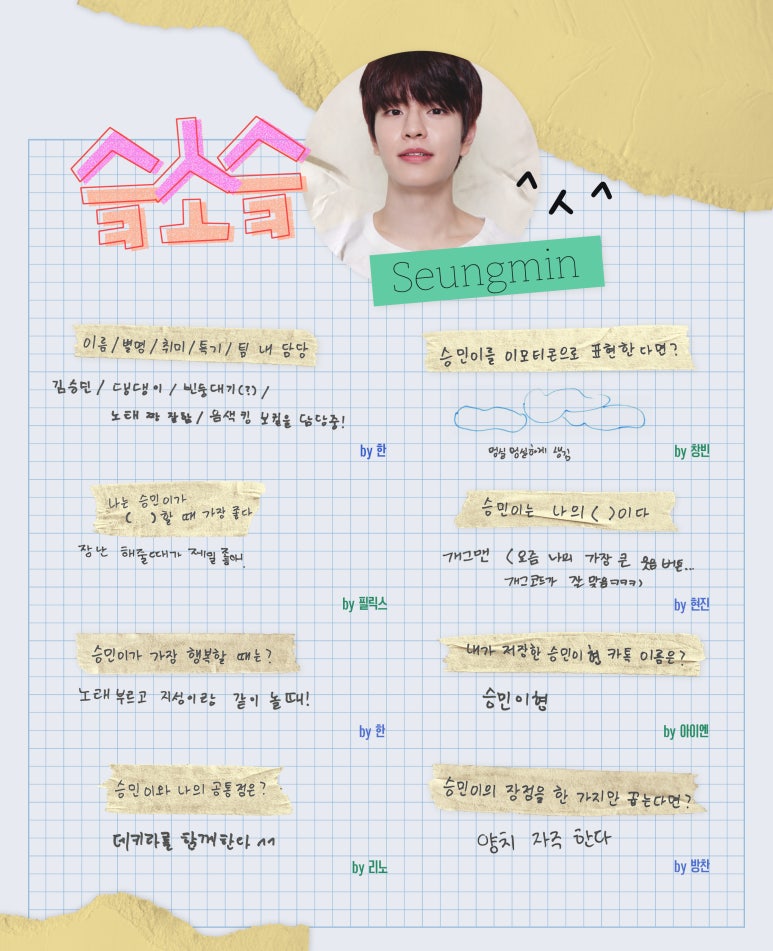 슼스슼
^ㅅ^
Seungmin
이름/별명/취미/특기/팀 내 담당
김승민/댕댕이/빈둥대기(?)/
노래 짱 잘함/음색킹 보컬을 담당중!
by 한
승민이를 이모티콘으로 표현한다면?
멍실멍실하게 생김
by 창빈
나는 승민이가
( )할 때 가장 좋다
장난 해줄때가 제일 좋아.
by 필릭스
승민이는 나의 ( )이다
개그맨 (요즘 나의 가장 큰 웃음버튼...
개그코드가 잘 맞음ㅋㅋㅋ)
by 현진
승민이가 가장 행복할 때는?
노래 부르고 지성이랑 같이 놀때!
by 한
내가 저장한 승민이형 카톡 이름은?
승민이형
by 아이엔
승민이와 나의 공통점은?
데키라를 함께한다 ^^
by 리노
승민이의 장점을 한 가지만 꼽는다면?
양치 자주 한다
by 방찬